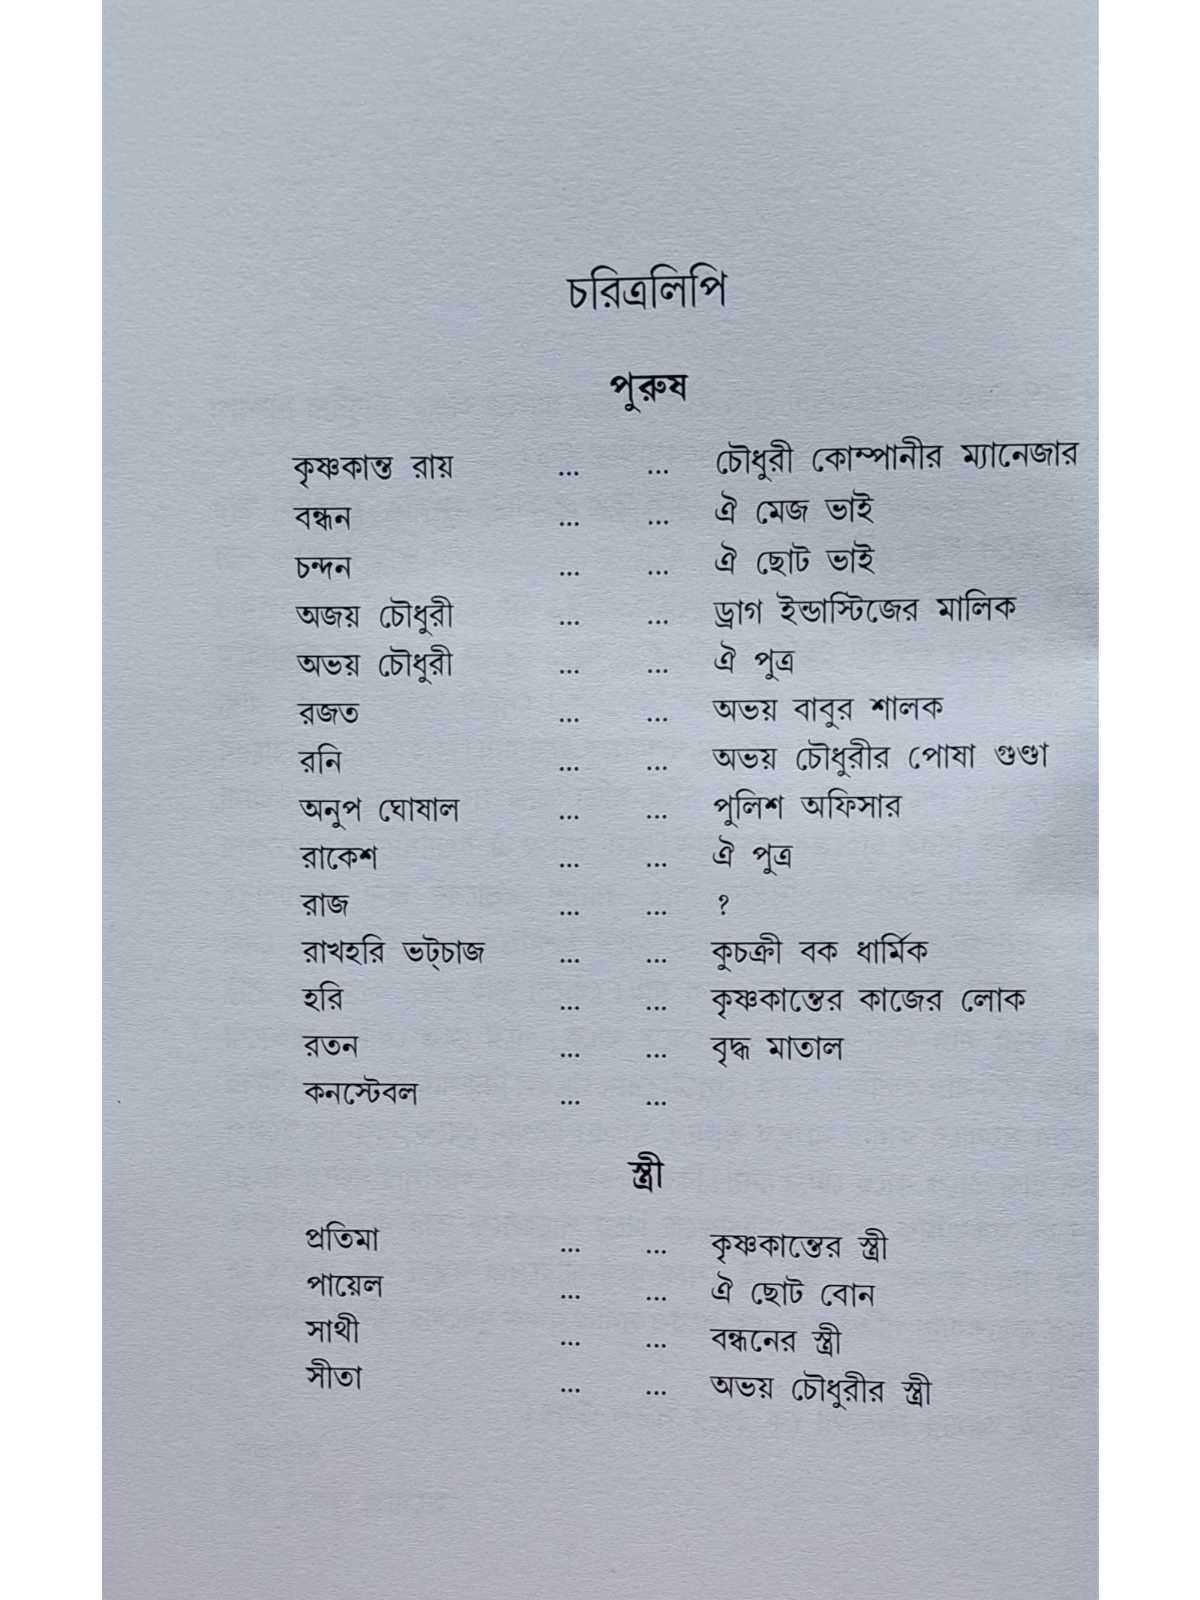 চরিত্রলিপি
পুরুষ
কৃষ্ণকান্ত রায় ... ... চৌধুরী কোম্পানীর ম্যানেজার
বন্ধন ... ... ঐ মেজ ভাই
চন্দন ... ... ঐ ছোট ভাই
অজয় চৌধুরী ... ... ড্রাগ ইন্ডাস্টিজের মালিক
অভয় চৌধুরী ... ... ঐ পুত্র
রজত ... ... অভয় বাবুর শালক
রনি ... ... অভয় চৌধুরীর পোষা গুণ্ডা
অনুপ ঘোষাল ... ... পুলিশ অফিসার
রাকেশ ... ... ঐ পুত্র
রাজ ... ... ?
রাখহরি ভট্‌চাজ ... ... কুচক্রী বক ধার্মিক
হরি ... ... কৃষ্ণকান্তের কাজের লোক
রতন ... ... বৃদ্ধ মাতাল
কনস্টেবল ... ...
স্ত্রী
প্রতিমা ... ... কৃষ্ণকান্তের স্ত্রী
পায়েল ... ... ঐ ছোট বোন
সাথী ... ... বন্ধনের স্ত্রী
সীতা ... ... অভয় চৌধুরীর স্ত্রী